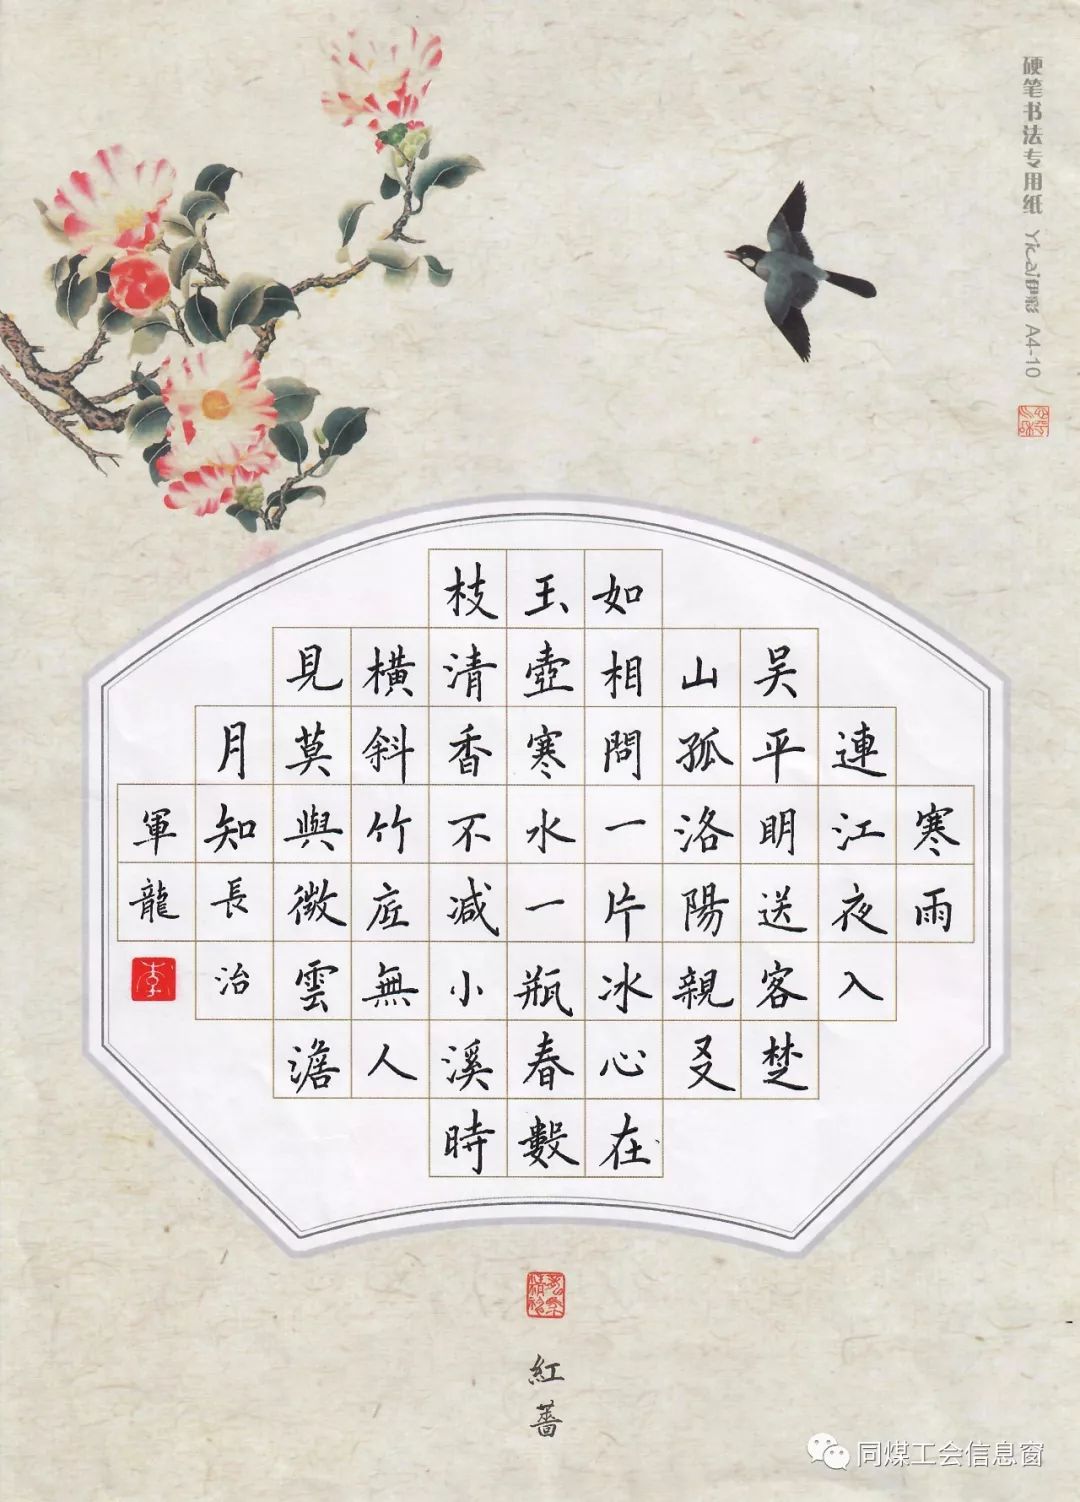 硬笔书法专用纸 Yicai伊彩 A4-10
寒雨
連江夜入
吴平明送客楚
山孤洛陽親㕛
如相問一片冰心在
玉壺寒水一瓶春數
枝清香不减小溪時
横斜竹底無人
見莫與微雲澹
月知長治
軍龍
李
紅薔
同煤工会信息窗